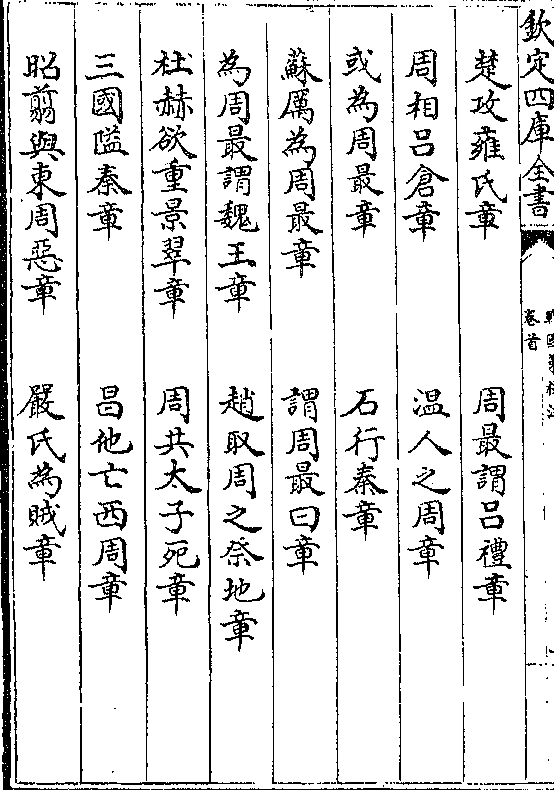 欽定四庫全書
卷首
楚攻雍氏章 周最謂吕禮章
周相吕倉章 温人之周章
或為周最章 石行秦章
蘇厲為周最章 謂周最曰章
為周最謂魏王章 趙取周之祭地章
杜赫欲重景翠章 周共太子死章
三國隘秦章 昌他亡西周章
昭翦與東周惡章 嚴氏為賊章